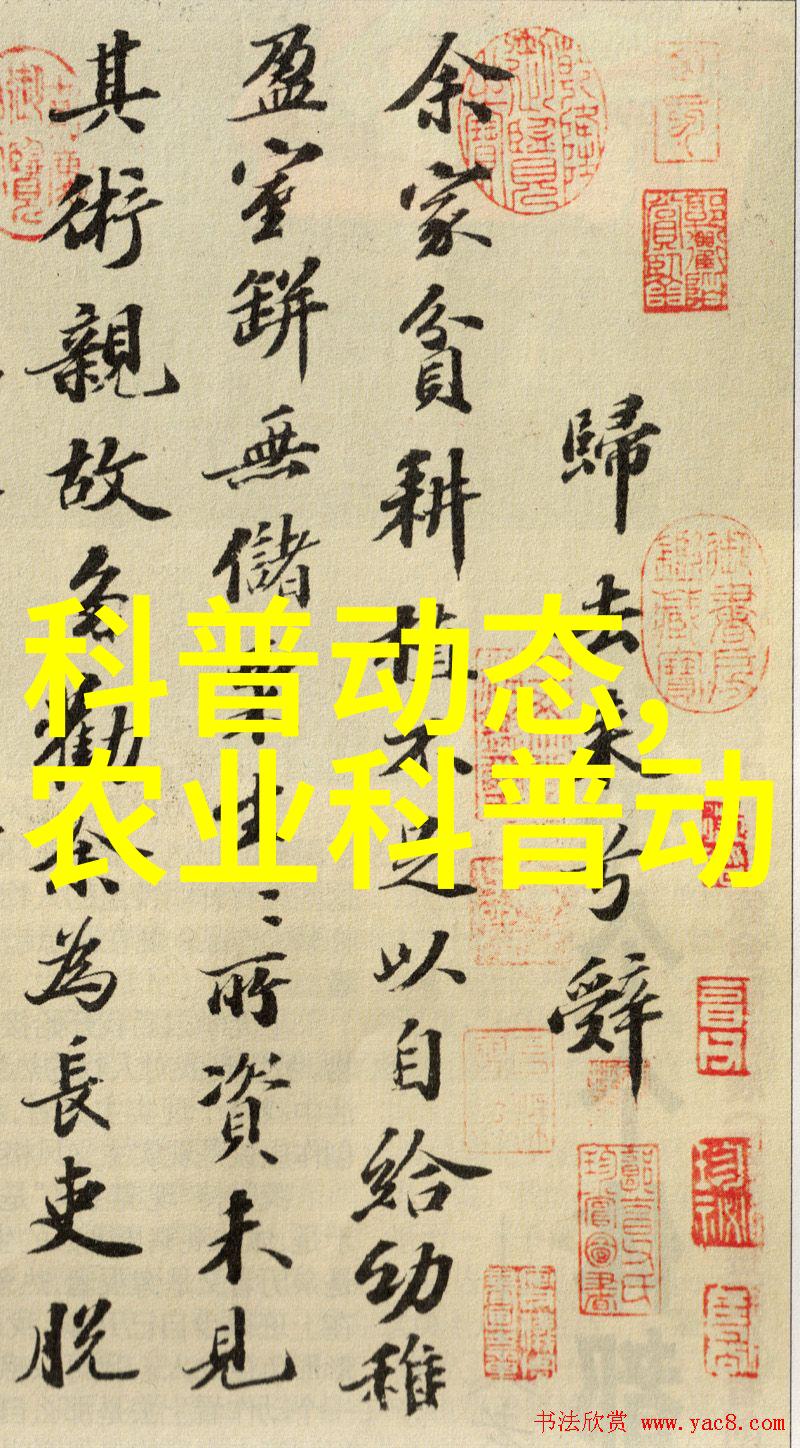 歸去來兮辭
余家貧耕植不足以自給幼稚
盈室缾無儲粟生〻所資未見
其術親故多勸余為長吏脫
科普动态,
农业科普动
书法欣赏 www.yac8.com